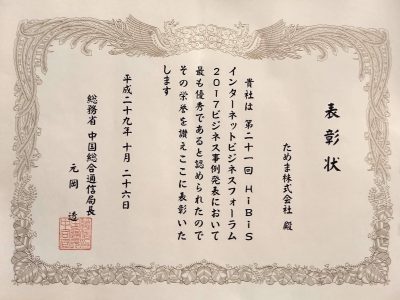 表彰状
ためま株式会社 殿
貴社は 第二十一回 HiBiS
インターネットビジネスフォーラム
2017ビジネス事例発表において
最も優秀であると認められたので
その栄誉を讃えここに表彰いた
します
平成二十九年 十月 二十六日
総務省 中国総合通信局長
元岡 透